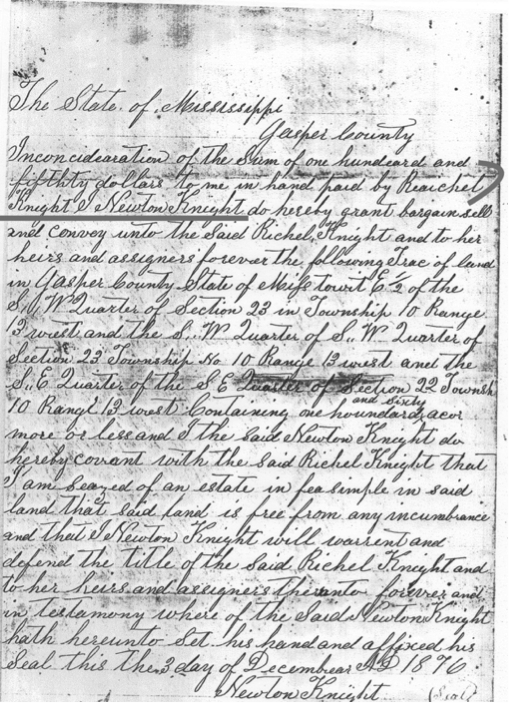 The State of Mississippi
Gasper County
Inconcidearation of the Sum of one hundeard and
fifthty dollars to me in hand paid by Reaichel
Knight I Newton Knight do hereby grant bargain sell
and convey unto the Said Richel Knight and to her
heirs and assigners forever the following Trac of land
in Gasper County State of Miss towit E 1/2 of the
S, W Quarter of Section 23 in Township 10 Range
13 west and the S,, W Quarter of S,, W Quarter of
Section 23 Township No. 10 Range 13 west and the
S,, E Quarter of the S E Quarter of Section 22 Townsh
and Sixty
10 Rangl 13 west Containing one houndard acor
more or less and I the said Newton Knight do
hereby covant with the Said Richel Knight that
I am Seazed of an estate in fea simple in said
land that said land is free from any incumbrance
and that I Newton Knight will warrent and
defend the title of the Said Richel Knight and
to her heirs and assigners theranto forever and
in testamony where of the Said Newton Knight
hath hereunto Set his hand and affixed his
Seal this the 3 day of Decembear AD 1876
Newton Knight (Seal)